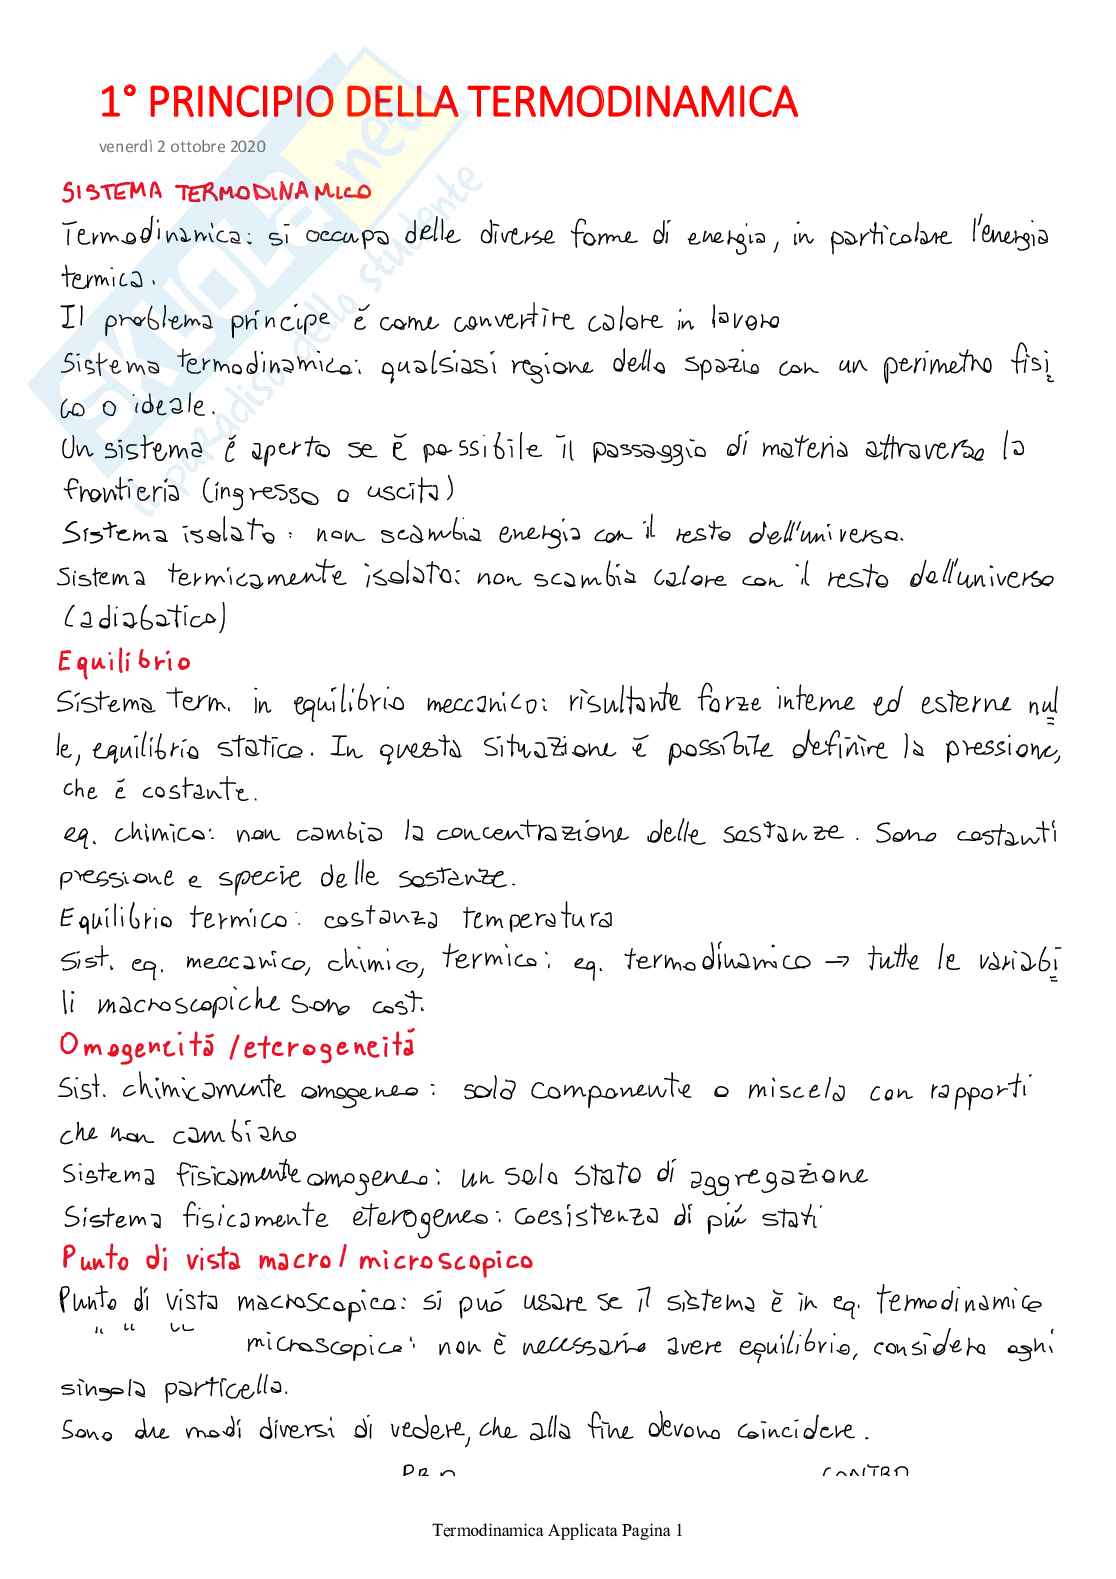 1° PRINCIPIO DELLA TERMODINAMICA
venerdì 2 ottobre 2020
SISTEMA TERMODINAMICO
Termodinamica: si occupa delle diverse forme di energia, in particolare l'energia
termica.
Il problema principe è come convertire calore in lavoro
Sistema termodinamico: qualsiasi regione dello spazio con un perimetro fisi
co o ideale.
Un sistema è aperto se è possibile il passaggio di materia attraverso la
frontieria (ingresso o uscita)
Sistema isolato: non scambia energia con il resto dell'universo.
Sistema termicamente isolato: non scambia calore con il resto dell'universo
(adiabatico)
Equilibrio
Sistema term. in equilibrio meccanico: risultante forze interne ed esterne nul
le, equilibrio statico. In questa situazione è possibile definire la pressione,
che è costante.
eq. chimico: non cambia la concentrazione delle sostanze. Sono costanti
pressione e specie delle sostanze.
Equilibrio termico: costanza temperatura
Sist. eq. meccanico, chimico, termico: eq. termodinamico → tutte le variabi
li macroscopiche sono cost.
Omogeneità /eterogeneità
Sist. chimicamente omogeneo: sola componente o miscela con rapporti
che non cambiano
Sistema fisicamente omogeneo: un solo stato di aggregazione
Sistema fisicamente eterogeneo: coesistenza di più stati
Punto di vista macro/microscopico
Punto di vista macroscopico: si può usare se il sistema è in eq. termodinamico
" " " microscopico: non è necessario avere equilibrio, considero ogni
singola particella.
Sono due modi diversi di vedere, che alla fine devono coincidere.
PRO CONTRO
Termodinamica Applicata Pagina 1
SKUOLA.net
il paradiso dello studente